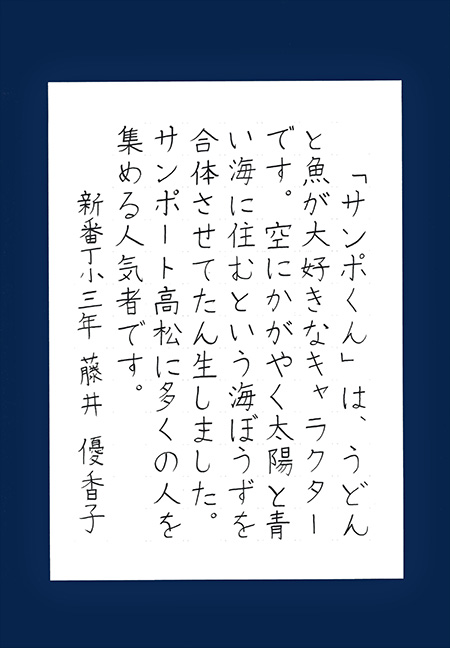 「サンポくん」は、うどん
と魚が大好きなキャラクター
です。空にかがやく太陽と青
い海に住むという海ぼうずを
合体させてたん生しました。
サンポート高松に多くの人を
集める人気者です。
新番丁小三年 藤井 優香子